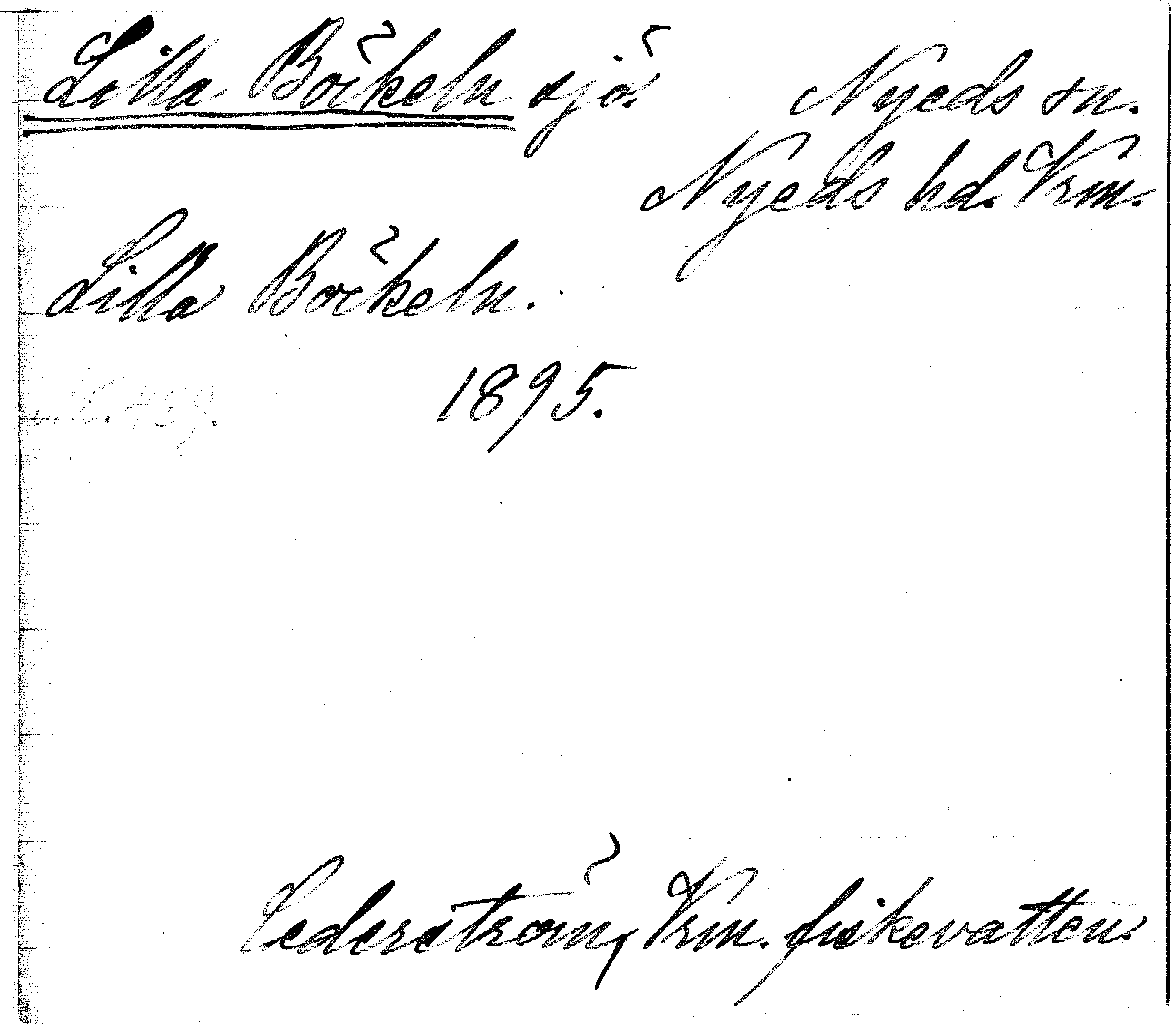 Lilla Böckeln sjö. Nyeds sn.
Nyeds hd. Vrm.
Lilla Böckeln.
1895.
Cederström, Vrm. fiskevatten.